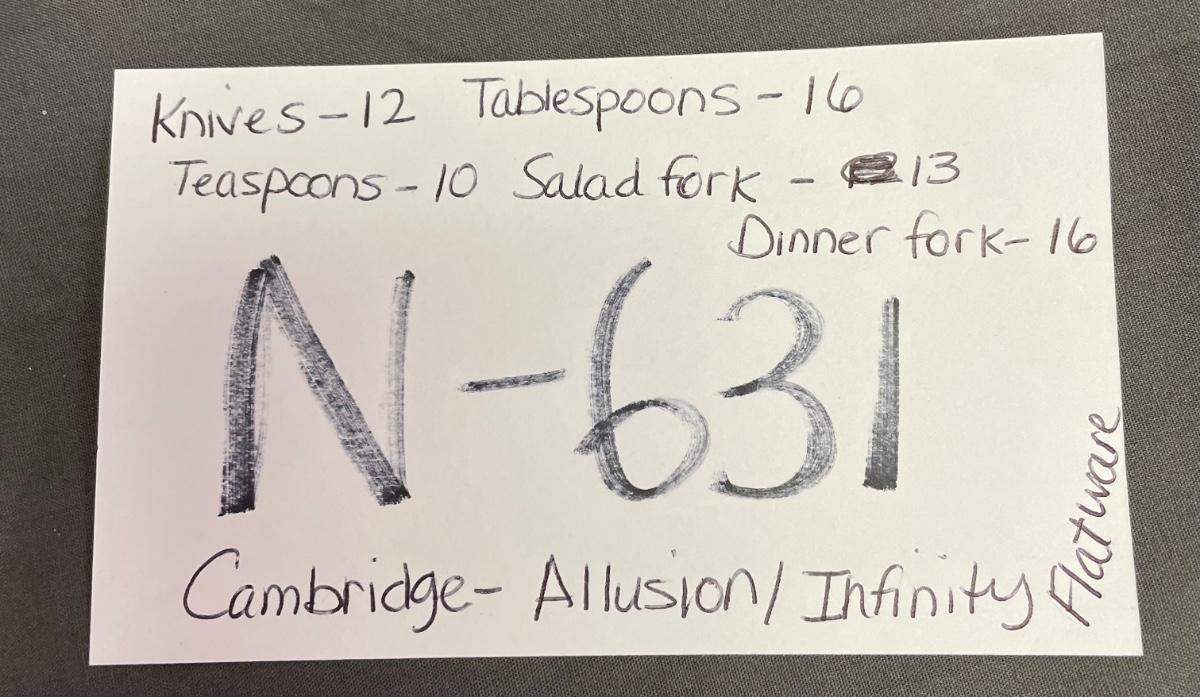 Knives - 12 Tablespoons - 16
Teaspoons - 10 Salad fork - 13
Dinner fork - 16
N-631
Cambridge - Allusion/Infinity
Flatware